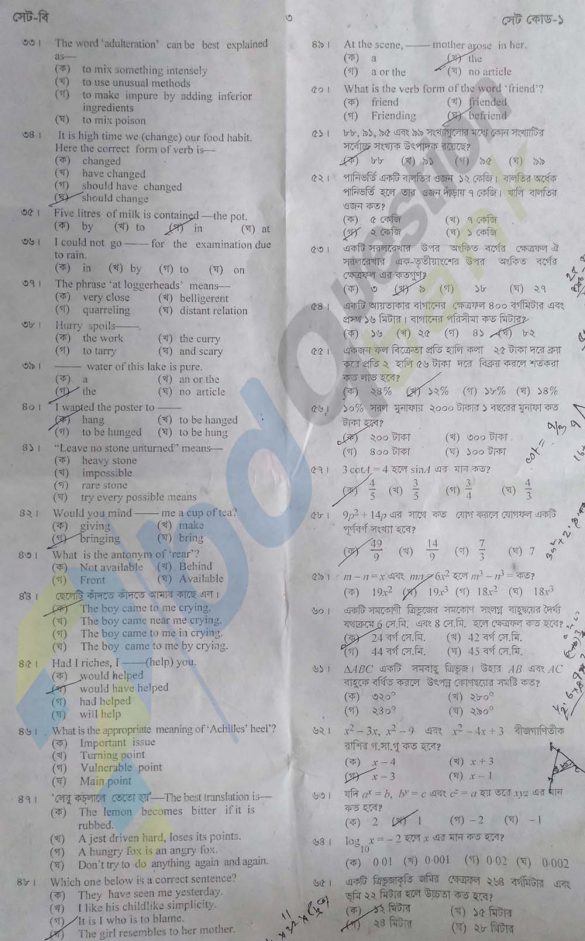 সেট-বি
৩
সেট কোড-১
৩৩। The word 'adulteration' can be best explained
as—
(ক) to mix something intensely
(খ) to use unusual methods
(গ) to make impure by adding inferior
ingredients
(ঘ) to mix poison
৩৪। It is high time we (change) our food habit.
Here the correct form of verb is—
(ক) changed
(খ) have changed
(গ) should have changed
(ঘ) should change
৩৫। Five litres of milk is contained —the pot.
(ক) by (খ) to (গ) in (ঘ) at
৩৬। I could not go —— for the examination due
to rain.
(ক) in (খ) by (গ) to (ঘ) on
৩৭। The phrase 'at loggerheads' means—
(ক) very close (খ) belligerent
(গ) quarreling (ঘ) distant relation
৩৮। Hurry spoils——
(ক) the work (খ) the curry
(গ) to tarry (ঘ) and scary
৩৯। —— water of this lake is pure.
(ক) a (খ) an or the
(গ) the (ঘ) no article
৪০। I wanted the poster to ——
(ক) hang (খ) to be hanged
(গ) to be hunged (ঘ) to be hung
৪১। "Leave no stone unturned" means—
(ক) heavy stone
(খ) impossible
(গ) rare stone
(ঘ) try every possible means
৪২। Would you mind —— me a cup of tea?
(ক) giving (খ) make
(গ) bringing (ঘ) bring
৪৩। What is the antonym of 'rear'?
(ক) Not available (খ) Behind
(গ) Front (ঘ) Available
৪৪। ছেলেটি কাঁদতে কাঁদতে আমার কাছে এল।
(ক) The boy came to me crying.
(খ) The boy came near me crying.
(গ) The boy came to me in crying.
(ঘ) The boy came to me by crying.
৪৫। Had I riches, I ——(help) you.
(ক) would helped
(খ) would have helped
(গ) had helped
(ঘ) will help
৪৬। What is the appropriate meaning of 'Achilles' heel'?
(ক) Important issue
(খ) Turning point
(গ) Vulnerable point
(ঘ) Main point
৪৭। 'লেবু কচলালে তেতো হয়'—The best translation is—
(ক) The lemon becomes bitter if it is
rubbed.
(খ) A jest driven hard, loses its points.
(গ) A hungry fox is an angry fox.
(ঘ) Don't try to do anything again and again.
৪৮। Which one below is a correct sentence?
(ক) They have seen me yesterday.
(খ) I like his childlike simplicity.
(গ) It is I who is to blame.
(ঘ) The girl resembles to her mother.
৪৯। At the scene, —— mother arose in her.
(ক) a (খ) the
(গ) a or the (ঘ) no article
৫০। What is the verb form of the word 'friend'?
(ক) friend (খ) friended
(গ) Friending (ঘ) befriend
৫১। ৮৮, ৯১, ৯৫ এবং ৯৯ সংখ্যাগুলোর মধ্যে কোন সংখ্যাটির
সর্বোচ্চ সংখ্যক উৎপাদক রয়েছে?
(ক) ৮৮ (খ) ৯১ (গ) ৯৫ (ঘ) ৯৯
৫২। পানিভর্তি একটি বালতির ওজন ১২ কেজি। বালতির অর্ধেক
পানিভর্তি হলে তার ওজন দাঁড়ায় ৭ কেজি। খালি বালতির
ওজন কত?
(ক) ৫ কেজি (খ) ৭ কেজি
(গ) ২ কেজি (ঘ) ১ কেজি
৫৩। একটি সরলরেখার উপর অংকিত বর্গের ক্ষেত্রফল ঐ
সরলরেখার এক-তৃতীয়াংশের উপর অংকিত বর্গের
ক্ষেত্রফল এর কতগুণ?
(ক) ৩ (খ) ৯ (গ) ১৮ (ঘ) ২৭
৫৪। একটি আয়তাকার বাগানের ক্ষেত্রফল ৪০০ বর্গমিটার এবং
প্রস্থ ১৬ মিটার। বাগানের পরিসীমা কত মিটার?
(ক) ১৬ (খ) ২৫ (গ) ৪১ (ঘ) ৮২
৫৫। একজন ফল বিক্রেতা প্রতি হালি কলা ২৫ টাকা দরে ক্রয়
করে প্রতি ২ হালি ৫৬ টাকা দরে বিক্রয় করলে শতকরা
কত লাভ হবে?
(ক) ২৪% (খ) ১২% (গ) ১৮% (ঘ) ১৪%
৫৬। ১০% সরল মুনাফায় ২০০০ টাকার ১ বছরের মুনাফা কত
টাকা হবে?
(ক) ২০০ টাকা (খ) ৩০০ টাকা
(গ) ৪০০ টাকা (ঘ) ১০০ টাকা
৫৭। 3 cotA = 4 হলে sinA এর মান কত?
(ক) 4/5 (খ) 3/5 (গ) 3/4 (ঘ) 4/3
৫৮। 9p² + 14p এর সাথে কত যোগ করলে যোগফল একটি
পূর্ণবর্গ সংখ্যা হবে?
(ক) 49/9 (খ) 14/9 (গ) 7/3 (ঘ) 7
৫৯। m – n = x এবং mn = 6x² হলে m³ – n³ = কত?
(ক) 19x² (খ) 19x³ (গ) 18x² (ঘ) 18x³
৬০। একটি সমকোণী ত্রিভুজের সমকোণ সংলগ্ন বাহুদ্বয়ের দৈর্ঘ্য
যথাক্রমে 6 সে.মি. এবং 8 সে.মি. হলে ক্ষেত্রফল কত হবে?
(ক) 24 বর্গ সে.মি. (খ) 42 বর্গ সে.মি.
(গ) 44 বর্গ সে.মি. (ঘ) 45 বর্গ সে.মি.
৬১। ΔABC একটি সমবাহু ত্রিভুজ। উহার AB এবং AC
বাহুকে বর্ধিত করলে উৎপন্ন কোণদ্বয়ের সমষ্টি কত?
(ক) ৩২০° (খ) ২৮০°
(গ) ২৪০° (ঘ) ২৯০°
৬২। x² – 3x, x² – 9 এবং x² – 4x + 3 বীজগাণিতীক
রাশির গ.সা.গু কত হবে?
(ক) x – 4 (খ) x + 3
(গ) x – 3 (ঘ) x – 1
৬৩। যদি aˣ = b, bʸ = c এবং cᶻ = a হয় তবে xyz এর মান
কত হবে?
(ক) 2 (খ) 1 (গ) – 2 (ঘ) – 1
৬৪। log₁₀ x = – 2 হলে x এর মান কত হবে?
(ক) 0·01 (খ) 0·001 (গ) 0·02 (ঘ) 0·002
৬৫। একটি ত্রিভুজাকৃতি জমির ক্ষেত্রফল ২৬৪ বর্গমিটার এবং
ভূমি ২২ মিটার হলে উচ্চতা কত হবে?
(ক) ১২ মিটার (খ) ১৫ মিটার
(গ) ২৪ মিটার (ঘ) ২৮ মিটার